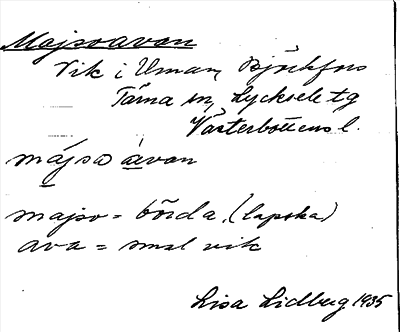 Majsoavan
Vik i Uman, Björkfors
Tärna sn, Lycksele tg
Västerbottens l.
májsa ávan
majso = börda, (lapska)
ava = smal vik
Lisa Lidberg 1935